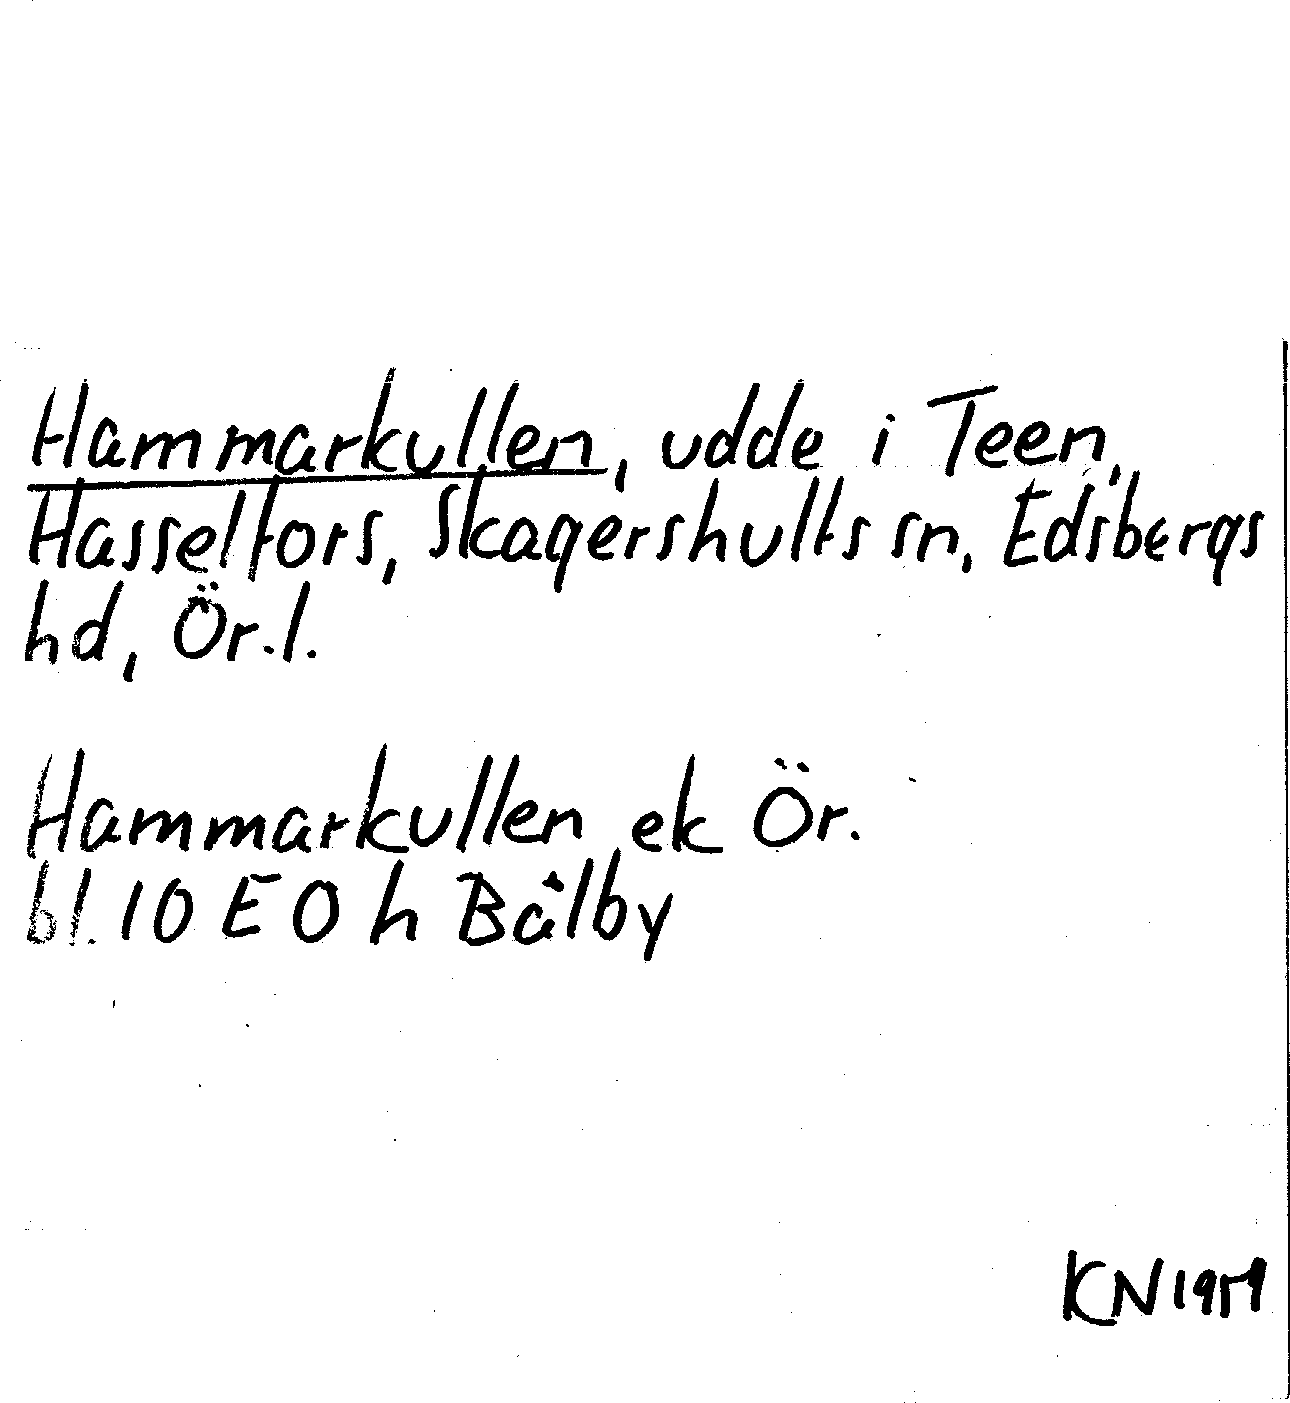 Hammarkullen, udde i Teen,
Hasselfors, Skagershults sn, Edsbergs
hd, Ör.l.
Hammarkullen ek Ör.
bl. 10 E 0 h Bålby
KN 1959